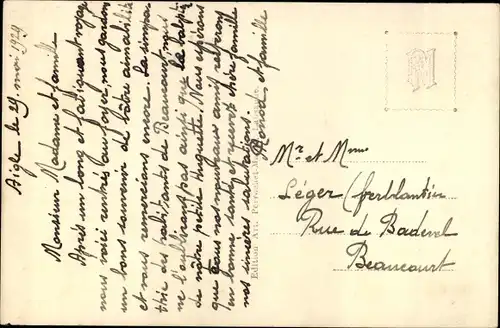 Aigle le 29. mai 1929
Monsieur Madame et famille
Après un long et ravissant voyage
nous voici rentrés au foyer, nous gardons
un bons souvenir de vôtre aimabilité
et vous remercions encore. La simpa-
thie des habitants de Beaucourt nous
ne l'oublirons pas ainsi que la
de nôtre petite Huguette. Nous espérons
que tous nos nouveaux amis resterons
en bonne santé, et recevez chère famille
nos sincères salutations.
Monod et famille
Edition Art. Perrochet
M
Mr et Mme
Léger (ferblantier
Rue de Badevel
Beaucourt